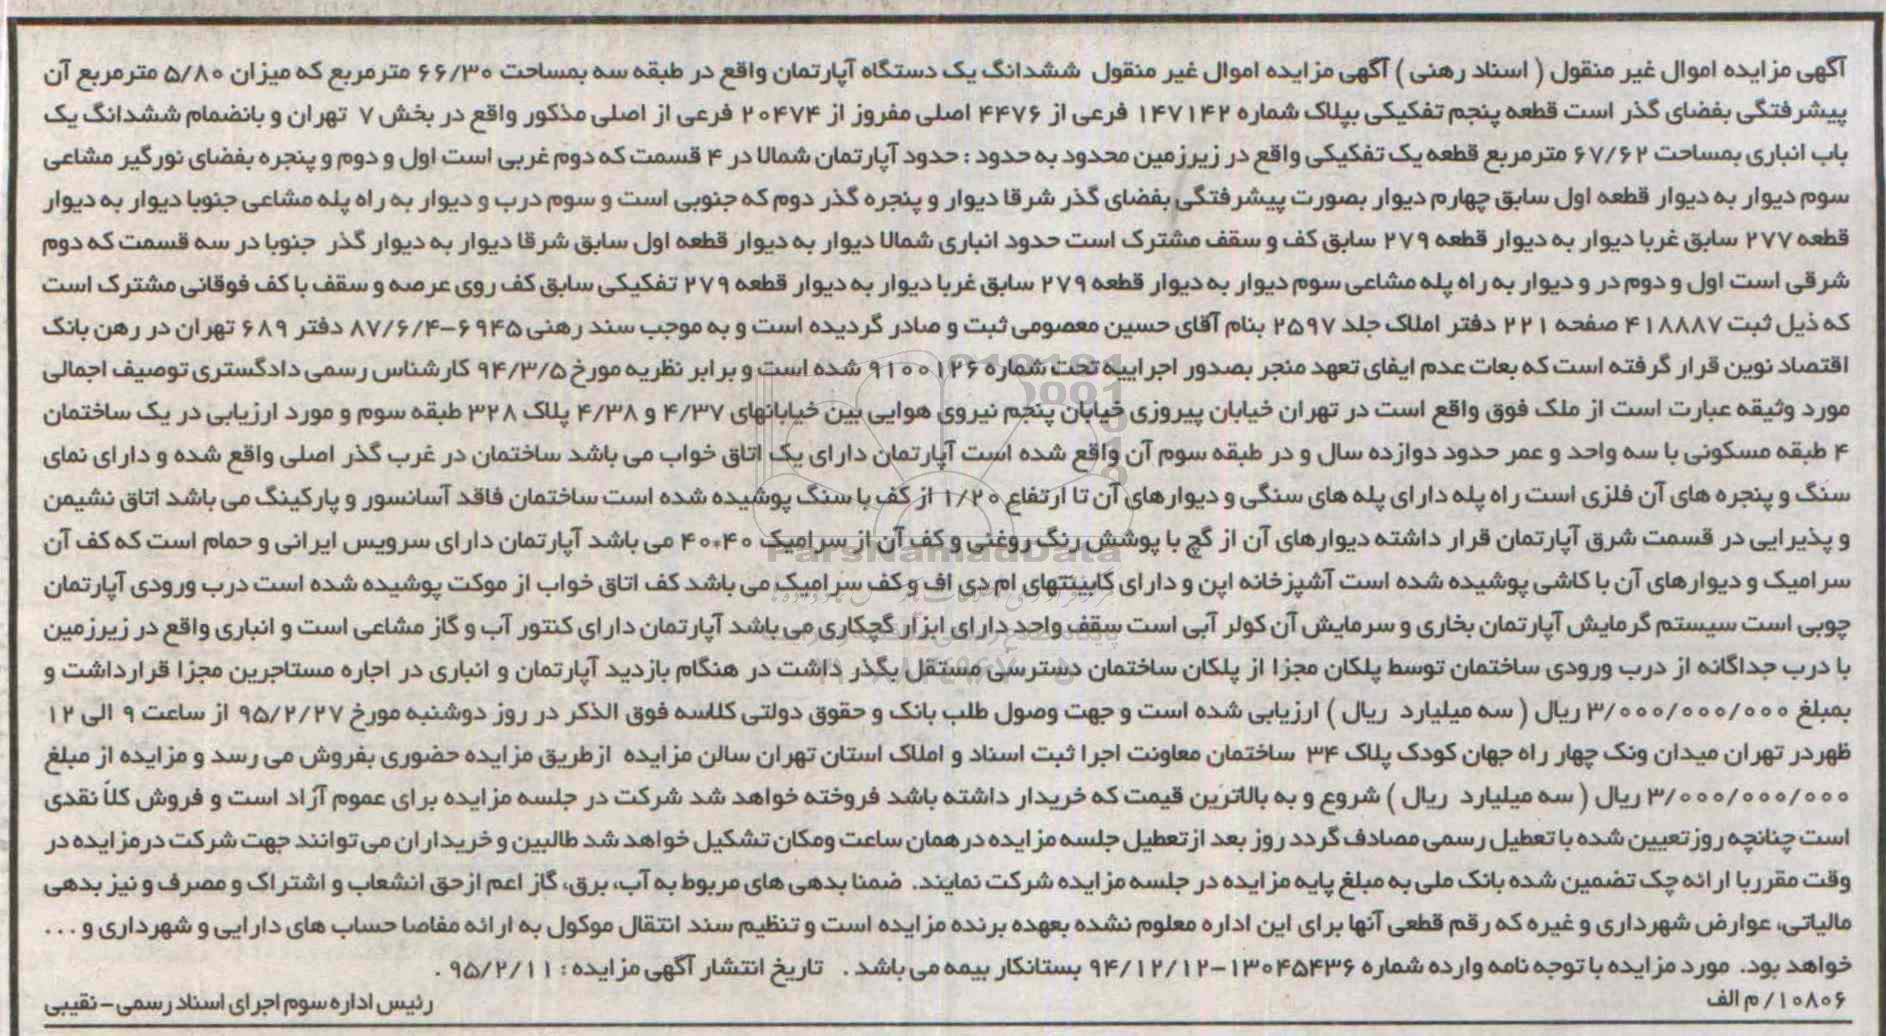 آگهی مزایده اموال غیر منقول ( اسناد رهنی ) آگهی مزایده اموال غیر منقول ششدانگ یک دستگاه آپارتمان واقع در طبقه سه بمساحت ۶۶/۳۰ مترمربع که میزان ۵/۸۰ مترمربع آن
پیشرفتگی بفضای گذر است قطعه پنجم تفکیکی بپلاک شماره ۱۴۷۱۴۲ فرعی از ۴۴۷۶ اصلی مفروز از ۲۰۴۷۴ فرعی از اصلی مذکور واقع در بخش ۷ تهران و بانضمام ششدانگ یک
باب انباری بمساحت ۶۷/۶۲ مترمربع قطعه یک تفکیکی واقع در زیرزمین محدود به حدود : حدود آپارتمان شمالا در ۴ قسمت که دوم غربی است اول و دوم و پنجره بفضای نورگیر مشاعی
سوم دیوار به دیوار قطعه اول سابق چهارم دیوار بصورت پیشرفتگی بفضای گذر شرقا دیوار و پنجره گذر دوم که جنوبی است و سوم درب و دیوار به راه پله مشاعی جنوبا دیوار به دیوار
قطعه ۲۷۷ سابق غربا دیوار به دیوار قطعه ۲۷۹ سابق کف و سقف مشترک است حدود انباری شمالا دیوار به دیوار قطعه اول سابق شرقا دیوار به دیوار گذر جنوبا در سه قسمت که دوم
شرقی است اول و دوم در و دیوار به راه پله مشاعی سوم دیوار به دیوار قطعه ۲۷۹ سابق غربا دیوار به دیوار قطعه ۲۷۹ تفکیکی سابق کف روی عرصه و سقف با کف فوقانی مشترک است
که ذیل ثبت ۴۱۸۸۸۷ صفحه ۲۲۱ دفتر املاک جلد ۲۵۹۷ بنام آقای حسین معصومی ثبت و صادر گردیده است و به موجب سند رهنی ۶۹۴۵-۸۷/۶/۴ دفتر ۶۸۹ تهران در رهن بانک
اقتصاد نوین قرار گرفته است که بعات عدم ایفای تعهد منجر بصدور اجراییه تحت شماره ۹۱۰۰۱۲۶ شده است و برابر نظریه مورخ ۹۴/۳/۵ کارشناس رسمی دادگستری توصیف اجمالی
مورد وثیقه عبارت است از ملک فوق واقع است در تهران خیابان پیروزی خیابان پنجم نیروی هوایی بین خیابانهای ۴/۳۷ و ۴/۳۸ پلاک ۳۲۸ طبقه سوم و مورد ارزیابی در یک ساختمان
۴ طبقه مسکونی با سه واحد و عمر حدود دوازده سال و در طبقه سوم آن واقع شده است آپارتمان دارای یک اتاق خواب می باشد ساختمان در غرب گذر اصلی واقع شده و دارای نمای
سنگ و پنجره های آن فلزی است راه پله دارای پله های سنگی و دیوارهای آن تا ارتفاع ۱/۲۰ از کف با سنگ پوشیده شده است ساختمان فاقد آسانسور و پارکینگ می باشد اتاق نشیمن
و پذیرایی در قسمت شرق آپارتمان قرار داشته دیوارهای آن از گچ با پوشش رنگ روغنی و کف آن از سرامیک ۴۰*۴۰ می باشد آپارتمان دارای سرویس ایرانی و حمام است که کف آن
سرامیک و دیوارهای آن با کاشی پوشیده شده است آشپزخانه اپن و دارای کابینتهای ام دی اف و کف سرامیک می باشد کف اتاق خواب از موکت پوشیده شده است درب ورودی آپارتمان
چوبی است سیستم گرمایش آپارتمان بخاری و سرمایش آن کولر آبی است سقف واحد دارای ابزار گچکاری می باشد آپارتمان دارای کنتور آب و گاز مشاعی است و انباری واقع در زیرزمین
با درب جداگانه از درب ورودی ساختمان توسط پلکان مجزا از پلکان ساختمان دسترسی مستقل بگذر داشت در هنگام بازدید آپارتمان و انباری در اجاره مستاجرین مجزا قرارداشت و
بمبلغ ۳/۰۰۰/۰۰۰/۰۰۰ ریال ( سه میلیارد ریال ) ارزیابی شده است و جهت وصول طلب بانک و حقوق دولتی کلاسه فوق الذکر در روز دوشنبه مورخ ۹۵/۲/۲۷ از ساعت ۹ الی ۱۲
ظهردر تهران میدان ونک چهار راه جهان کودک پلاک ۳۴ ساختمان معاونت اجرا ثبت اسناد و املاک استان تهران سالن مزایده ازطریق مزایده حضوری بفروش می رسد و مزایده از مبلغ
۳/۰۰۰/۰۰۰/۰۰۰ ریال ( سه میلیارد ریال ) شروع و به بالاترین قیمت که خریدار داشته باشد فروخته خواهد شد شرکت در جلسه مزایده برای عموم آزاد است و فروش کلاً نقدی
است چنانچه روز تعیین شده با تعطیل رسمی مصادف گردد روز بعد از تعطیل جلسه مزایده درهمان ساعت ومکان تشکیل خواهد شد طالبین و خریداران می توانند جهت شرکت درمزایده در
وقت مقرربا ارائه چک تضمین شده بانک ملی به مبلغ پایه مزایده در جلسه مزایده شرکت نمایند. ضمنا بدهی های مربوط به آب، برق، گاز اعم ازحق انشعاب و اشتراک و مصرف و نیز بدهی
مالیاتی، عوارض شهرداری و غیره که رقم قطعی آنها برای این اداره معلوم نشده بعهده برنده مزایده است و تنظیم سند انتقال موکول به ارائه مفاصا حساب های دارایی و شهرداری و ...
خواهد بود. مورد مزایده با توجه نامه وارده شماره ۱۳۰۴۵۴۳۶-۹۴/۱۲/۱۲ بستانکار بیمه می باشد . تاریخ انتشار آگهی مزایده : ۹۵/۲/۱۱ .
۱۰۸۰۶/ م الف
رئیس اداره سوم اجرای اسناد رسمی - نقیبی
ParsNamadData